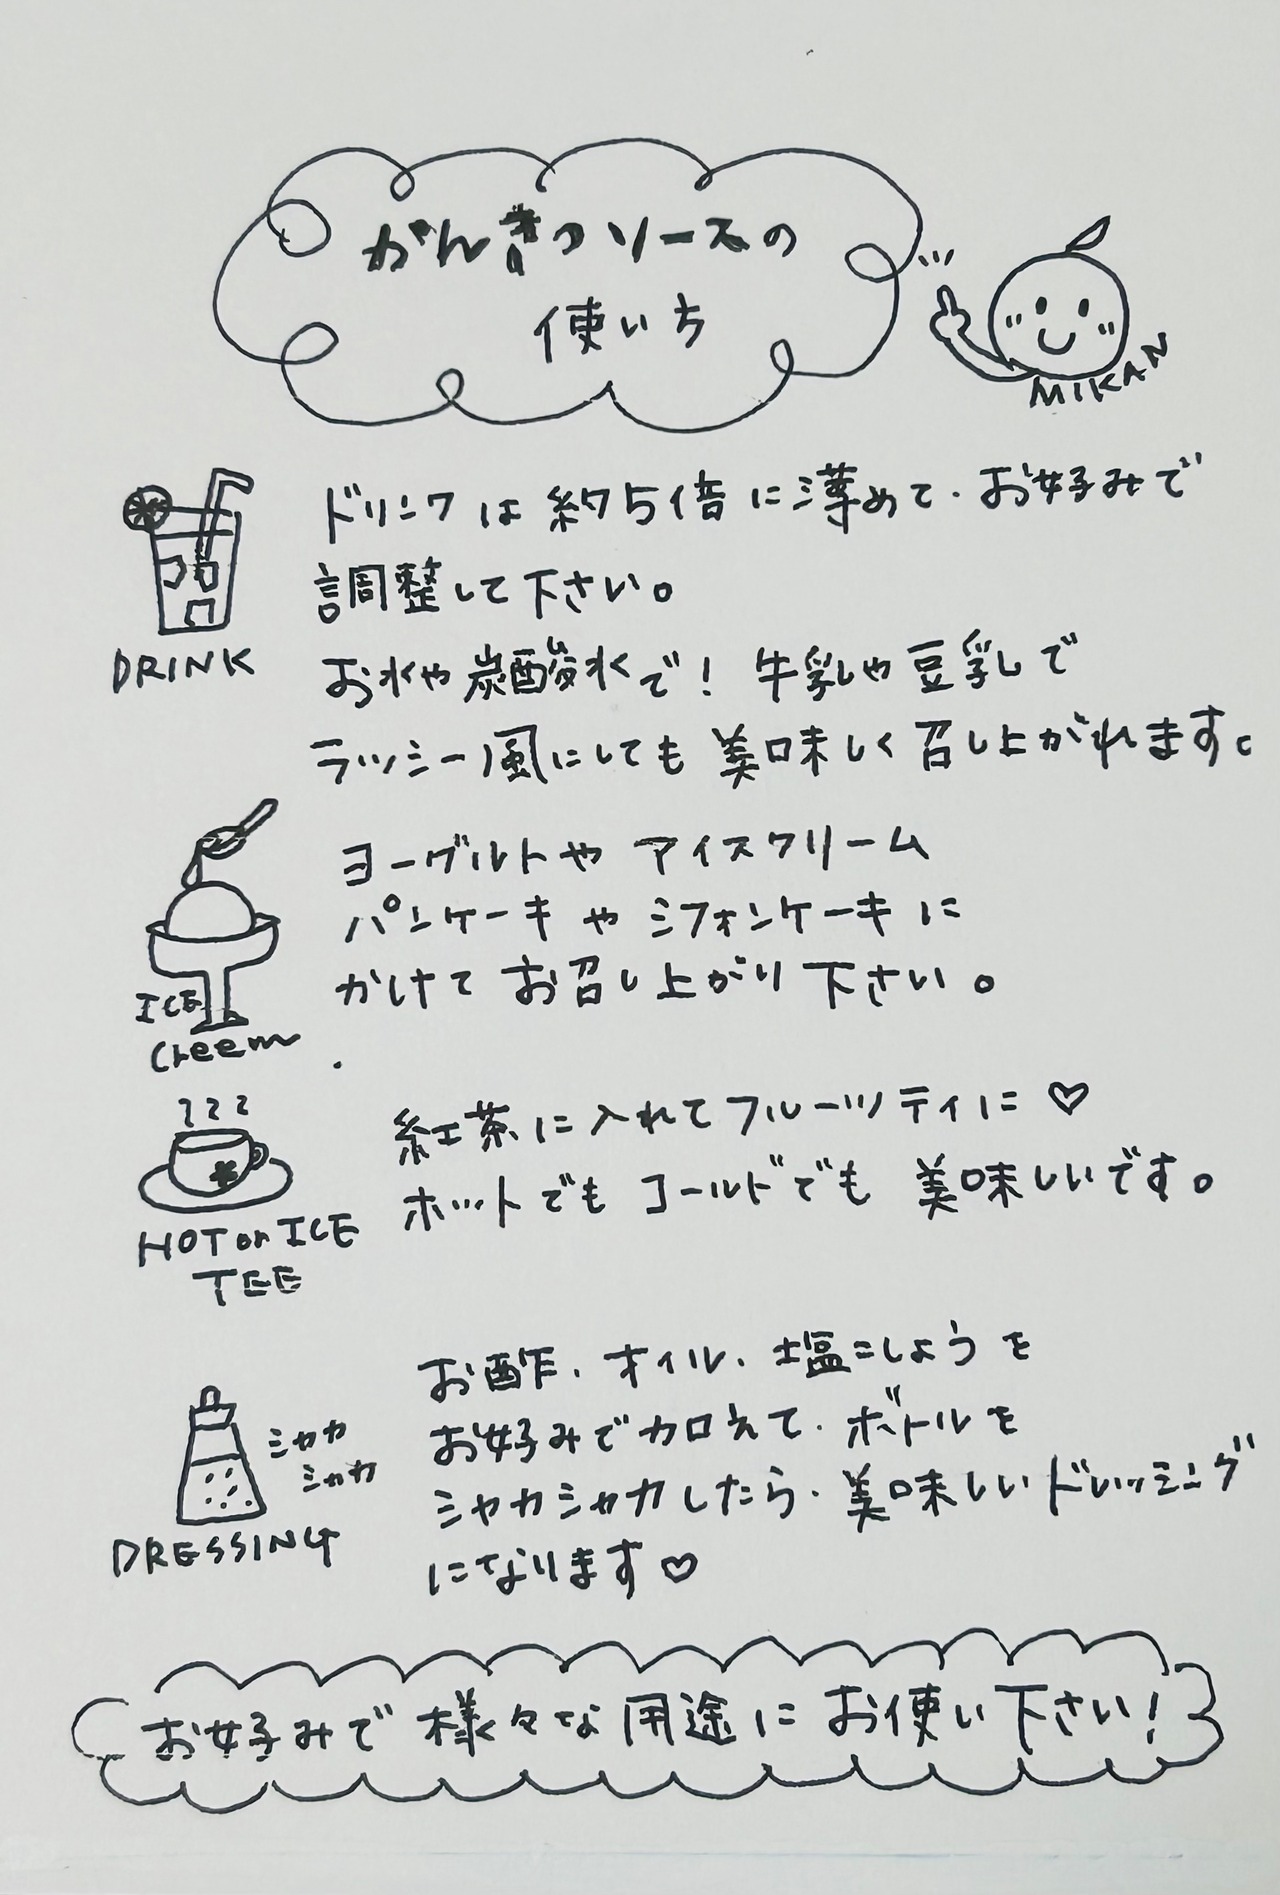 がんきつソースの
使い方
MIKAN
ドリンクは約5倍に薄めて、お好みで
調整して下さい。
お水や炭酸水で！牛乳や豆乳で
ラッシー風にしても美味しく召し上がれます。
DRINK
ヨーグルトやアイスクリーム
パンケーキやシフォンケーキに
かけてお召し上がり下さい。
ICE
Creem
紅茶に入れてフルーツティに♡
ホットでもコールドでも美味しいです。
HOT or ICE
TEE
お酢、オイル、塩こしょうを
お好みで加えて、ボトルを
シャカシャカしたら、美味しいドレッシング
になります♡
シャカ
シャカ
DRESSING
お好みで様々な用途にお使い下さい！